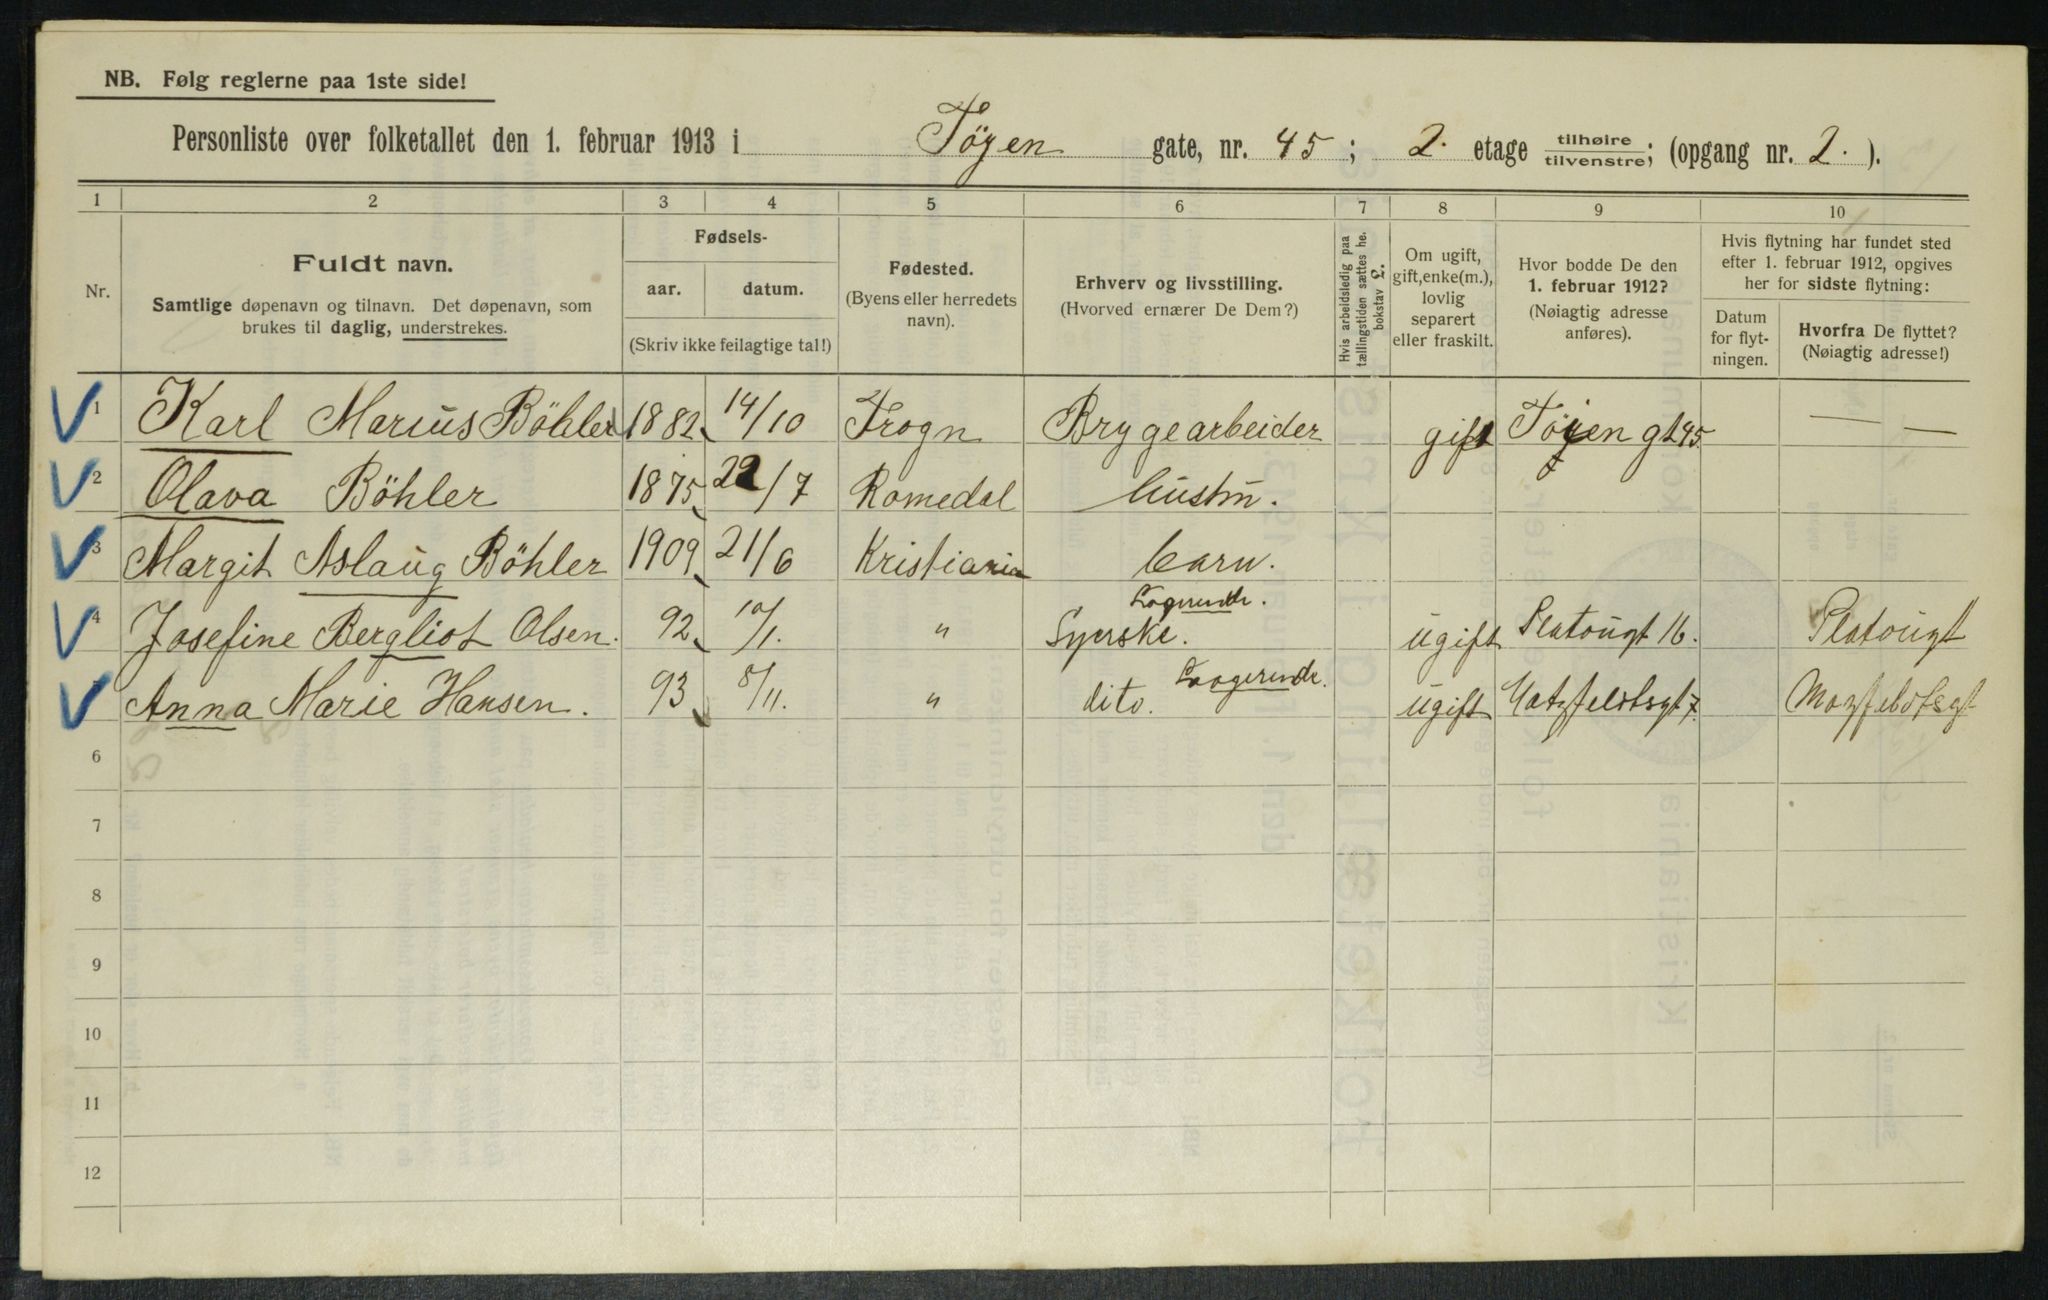 NB. Følg reglerne paa 1ste side!
Personliste over folketallet den 1. februar 1913 i Töyen gate, nr. 45; 2. etage tilhøire/tilvenstre; (opgang nr. 2.).
1 2 3 4 5 6 7 8 9 10
Nr.
Fuldt navn.
Samtlige døpenavn og tilnavn. Det døpenavn, som
brukes til daglig, understrekes.
Fødsels-
aar. datum.
(Skriv ikke feilagtige tal!)
Fødested.
(Byens eller herredets
navn).
Erhverv og livsstilling.
(Hvorved ernærer De Dem?)
Hvis arbeidsledig paa
tællingstiden sættes he.
bokstav L.
Om ugift,
gift, enke(m.),
lovlig
separert
eller fraskilt.
Hvor bodde De den
1. februar 1912?
(Nøiagtig adresse
anføres).
Hvis flytning har fundet sted
efter 1. februar 1912, opgives
her for sidste flytning:
Datum
for flyt-
ningen.
Hvorfra De flyttet?
(Nøiagtig adresse!)
1 Karl Marius Böhler 1882 14/10 Frogn Bryggearbeider gift Töyen gt 45 — —
2 Olava Böhler 1875 22/7 Romedal hustru.
3 Margit Aslaug Böhler 1909 21/6 Kristiania barn.
Logerende.
4 Josefine Bergliot Olsen. 92 10/1. " Syerske. ugift Platougt 16. Platougt
Loogerende.
5 Anna Marie Hansen. 93 8/11. " dito. ugift Hatzfeldtsgt 7.
6
7
8
9
10
11
12